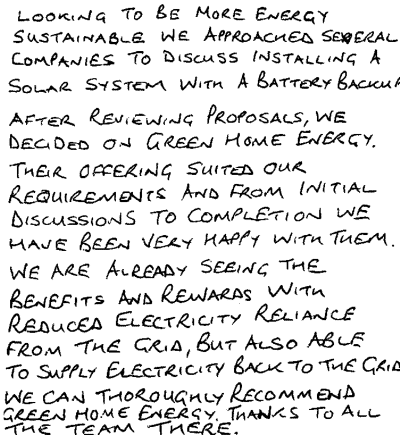 LOOKING TO BE MORE ENERGY
SUSTAINABLE WE APPROACHED SEVERAL
COMPANIES TO DISCUSS INSTALLING A
SOLAR SYSTEM WITH A BATTERY BACKUP
AFTER REVIEWING PROPOSALS, WE
DECIDED ON GREEN HOME ENERGY.
THEIR OFFERING SUITED OUR
REQUIREMENTS AND FROM INITIAL
DISCUSSIONS TO COMPLETION WE
HAVE BEEN VERY HAPPY WITH THEM.
WE ARE ALREADY SEEING THE
BENEFITS AND REWARDS WITH
REDUCED ELECTRICITY RELIANCE
FROM THE GRID, BUT ALSO ABLE
TO SUPPLY ELECTRICITY BACK TO THE GRID
WE CAN THOROUGHLY RECOMMEND
GREEN HOME ENERGY. THANKS TO ALL
THE TEAM THERE.